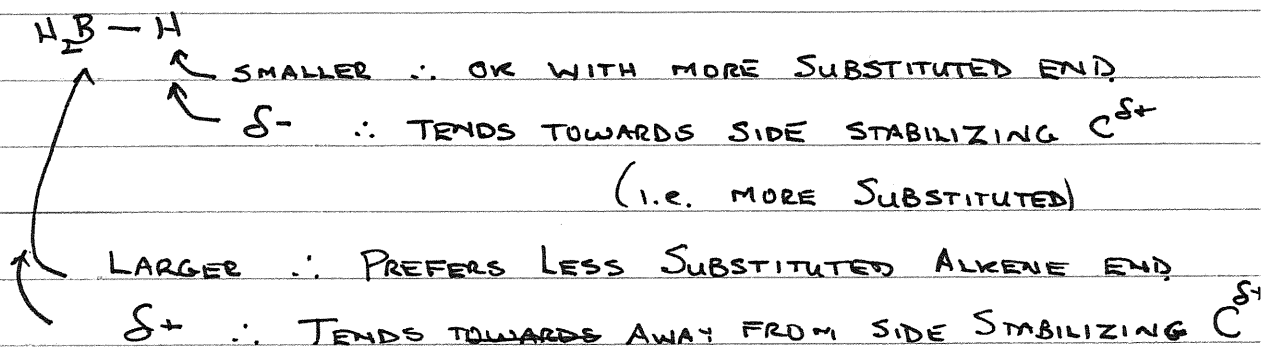 H₂B — H
SMALLER ∴ OK WITH MORE SUBSTITUTED END
δ- ∴ TENDS TOWARDS SIDE STABILIZING C^δ+
(i.e. MORE SUBSTITUTED)
LARGER ∴ PREFERS LESS SUBSTITUTED ALKENE END
δ+ ∴ TENDS TOWARDS AWAY FROM SIDE STABILIZING C^δ+